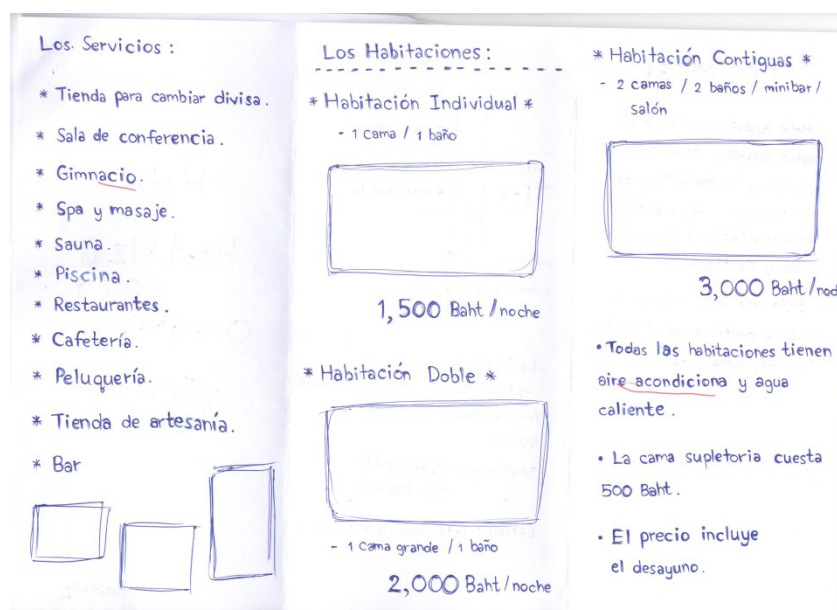 Los Servicios :
* Tienda para cambiar divisa.
* Sala de conferencia.
* Gimnacio.
* Spa y masaje.
* Sauna.
* Piscina.
* Restaurantes.
* Cafetería.
* Peluquería.
* Tienda de artesanía.
* Bar
Los Habitaciones :
* Habitación Individual *
- 1 cama / 1 baño
1,500 Baht / noche
* Habitación Doble *
- 1 cama grande / 1 baño
2,000 Baht / noche
* Habitación Contiguas *
- 2 camas / 2 baños / minibar /
salón
3,000 Baht /
• Todas las habitaciones tienen
aire acondiciona y agua
caliente.
• La cama supletoria cuesta
500 Baht.
• El precio incluye
el desayuno.